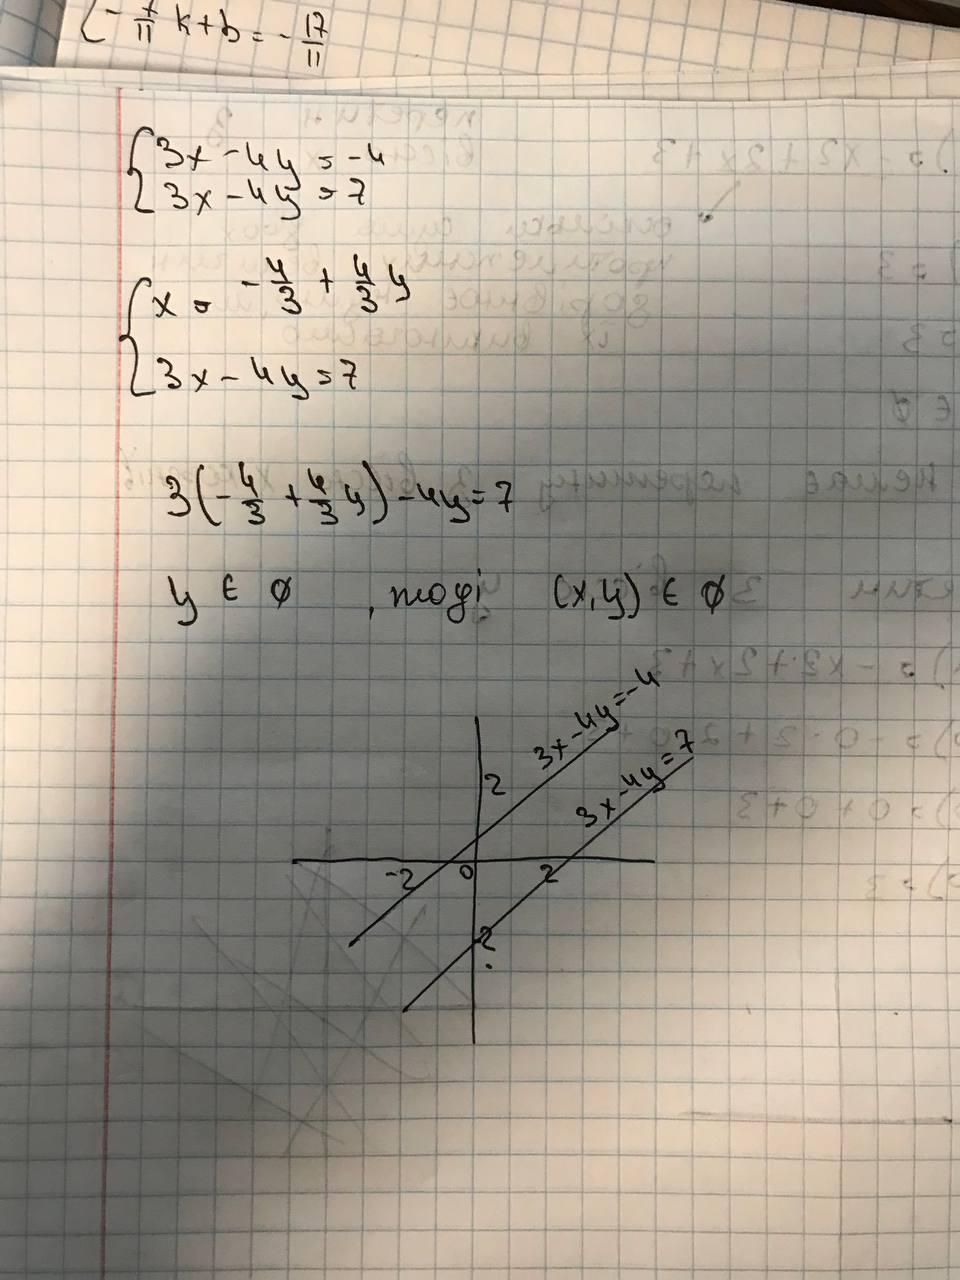 { - 7/11 k + b = - 17/11
{ 3x - 4y = -4
3x - 4y = 7
{ x = - 4/3 + 4/3 y
3x - 4y = 7
3(- 4/3 + 4/3 y) - 4y = 7
y ∈ ∅ , тоді (x, y) ∈ ∅
3x - 4y = -4
3x - 4y = 7
2
-2 0 2
2